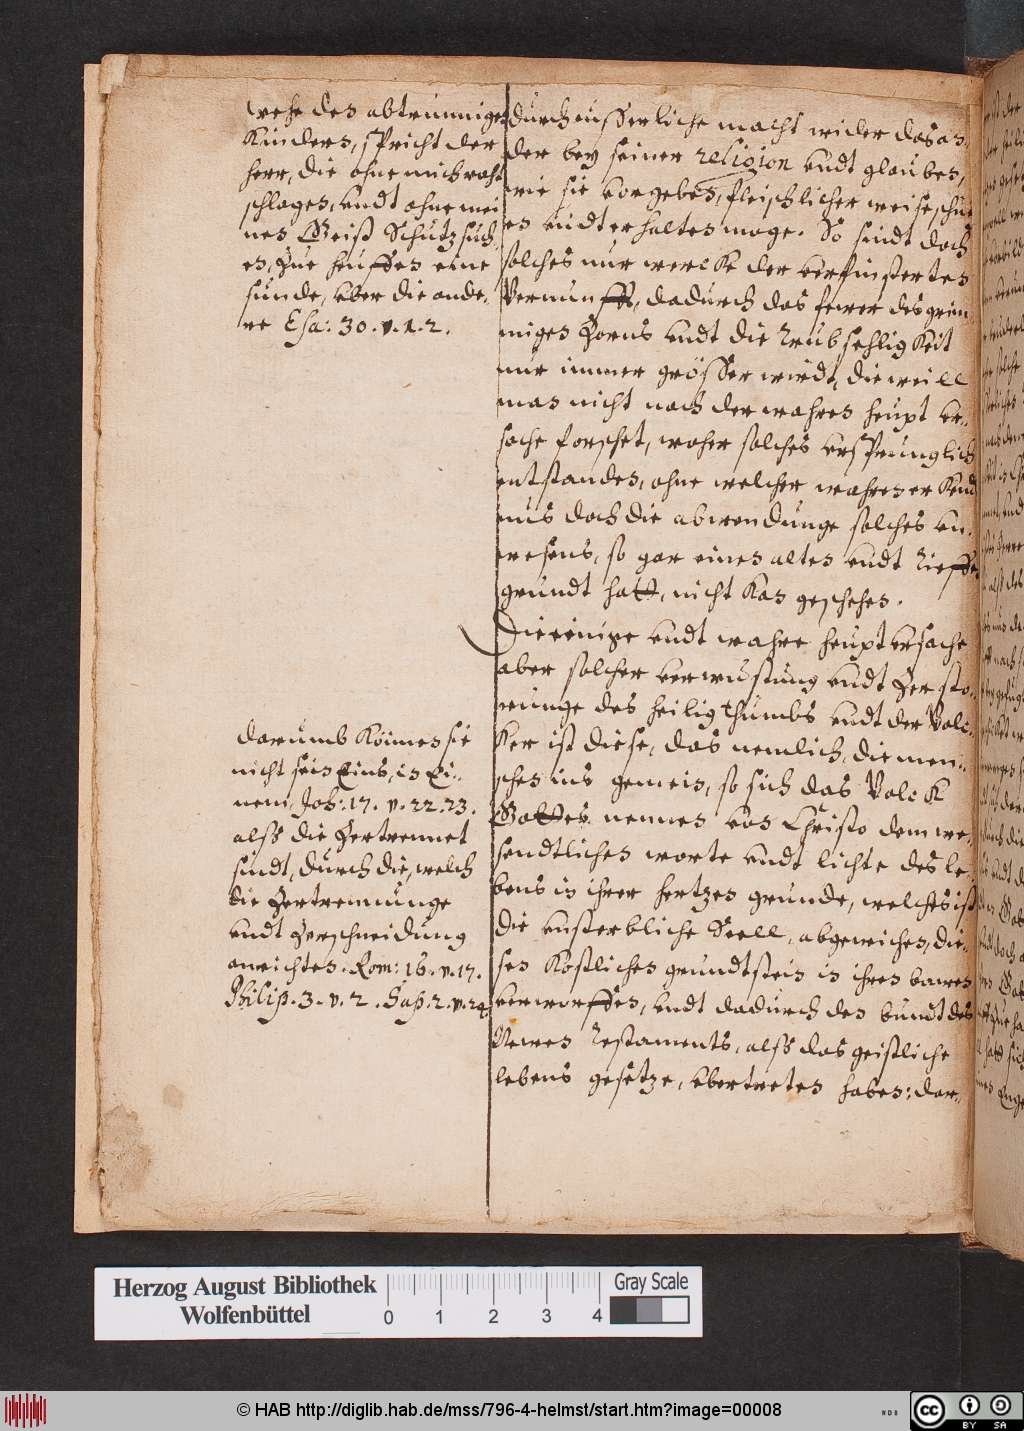 wehe den abtrunnigen
Kindern, spricht der
herr, die ohne mich raht
schlagen, undt ohne mei
nen Geist Schutz such
en, Zue heuffen eine
sunde, uber die ande,,
re Esa: 30. v. 1. 2.
darumb Können sie
nicht sein Eins, in Ei,,
nem, Joh: 17. v. 22. 23.
alss die Zertrennet
sindt, durch die, welch
die Zertrennunge
undt Zerschneidung
anrichten. Rom: 16. v. 17.
Philip. 3. v. 2. Sap. 2. v. 24.
durch eusserliche macht wider das an
der bey seiner religion undt glauben,
wie sie vorgeben, fleischlicher weise schutz
en undt erhalten moge. So sindt doch
solches nur wercke der verfinsterten
Vernunfft, dadurch das fewer des grim
migen Zorns undt die Trubsehligkeit
nur immer grösser wirdt, die weill
man nicht nach der wahren heupt ur,,
sache forschet, woher solches ursprunglich
entstanden, ohne welcher wahren erkend
nus doch die abwendunge solches un,,
wesens, so gar einen alten undt tieffen
grundt hatt, nicht kan geschehen.
Die einige undt wahre heupt ursache
aber solcher verwustung undt Zersto,,
runge des heiligthumbs undt der Volc,,
ker ist diese, das nemlich, die men,,
schen ins gemein, so sich das Volck
Gottes nennen von Christo dem we,,
sendtlichen worte undt lichte des le,,
bens in ihrer hertzen grunde, welches ist
die unsterbliche Seell, abgewichen, die,,
sen Kostlichen grundtstein in ihren bawen
verworffen, undt dadurch den bundt des
Newen Testaments, alss das geistliche
lebens gesetze, ubertreten haben: dar,,
Herzog August Bibliothek
Wolfenbüttel
0 1 2 3 4
Gray Scale
© HAB http://diglib.hab.de/mss/796-4-helmst/start.htm?image=00008
BY SA